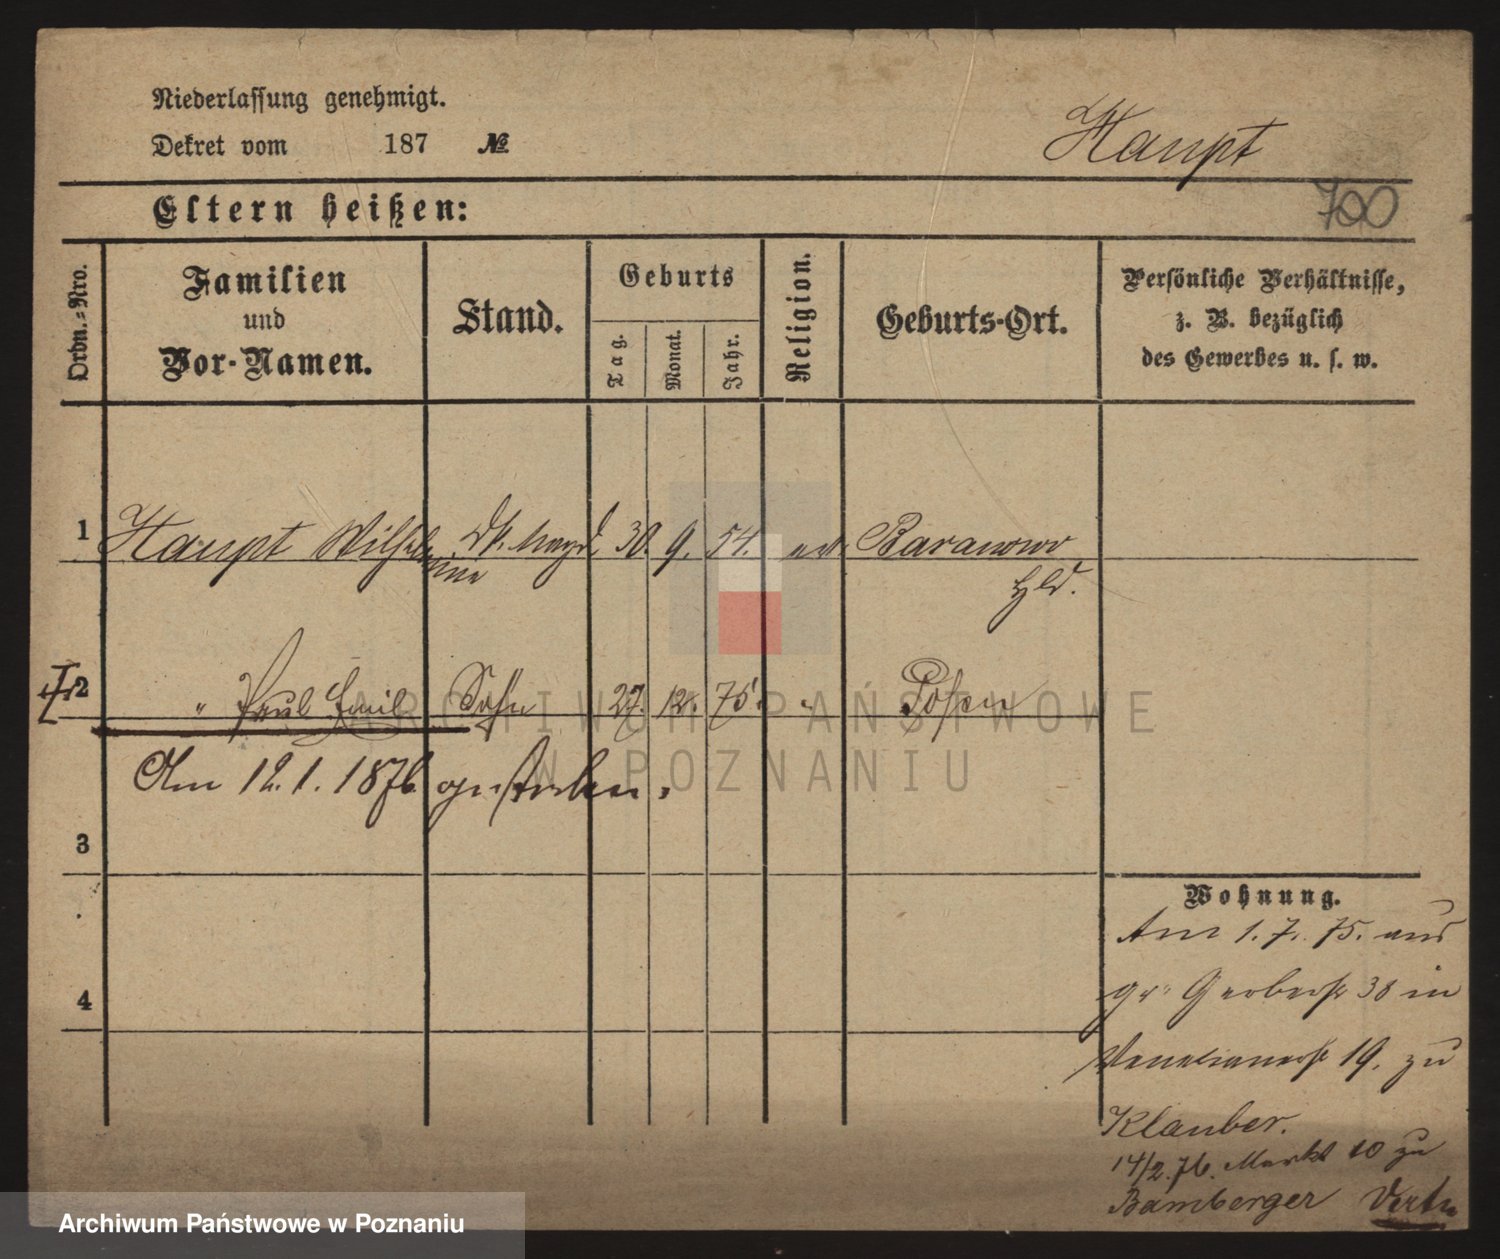 Niederlassung genehmigt.
Dekret vom 187 №
Haupt
700
Eltern heißen:
Ordn.=Nro.
Familien
und
Vor-Namen.
Stand.
Geburts
Tag.
Monat.
Jahr.
Religion.
Geburts-Ort.
Persönliche Verhältnisse,
z. B. bezüglich
des Gewerbes u. s. w.
1 Haupt Wilhelmine 30. 9. 54. Baranowo
Hld.
2 " Paul Emil Sohn 27. 12. 75. " Posen
Am 12. 1. 1876 gestorben.
3
4
Wohnung.
Am 1. 7. 75. aus
gr. Gerberstr 38 in
Venetianerstr 19. zu
Klauber.
14/2. 76. Markt 10 zu
Bamberger
ARCHIWUM PAŃSTWOWE
W POZNANIU
Archiwum Państwowe w Poznaniu